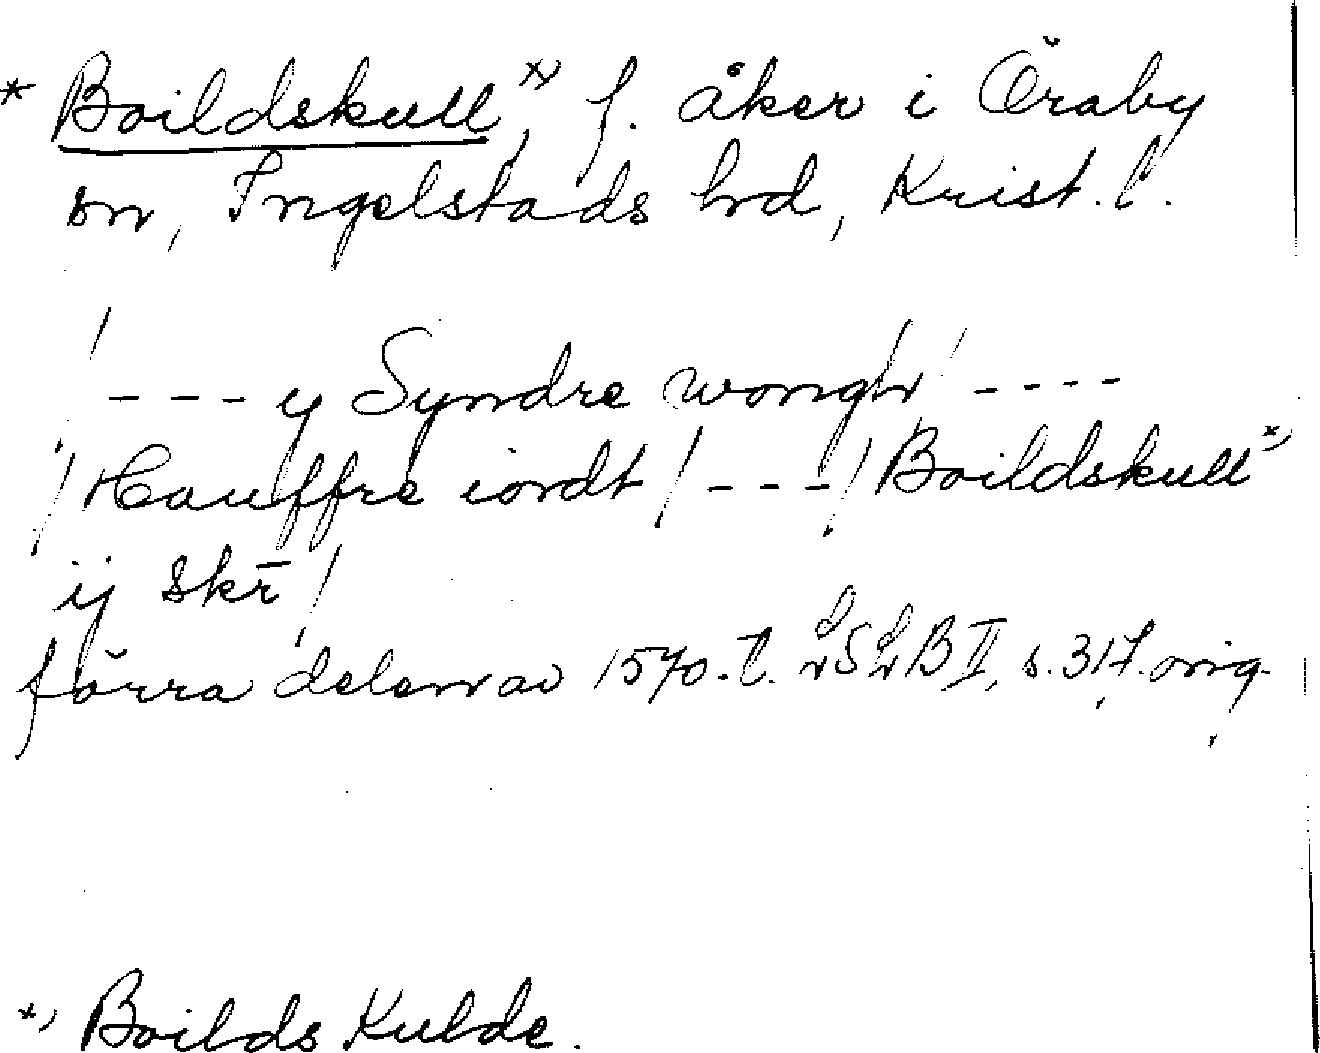 * Boildskull *), f. åker i Öraby
sn, Ingelstads hd, Krist. l.
/ --- y Syndre wongh / ----
/ Hauffre iordt / --- / Boildskull *)
ij skr̄ /
förra delen av 1570-t. LSLB II, s. 317. orig.
*) Boilds Kulde.